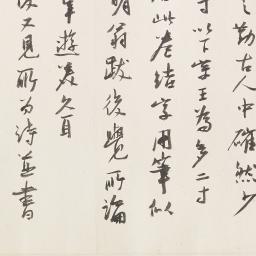 之勤古人中確然少
寸以下學王為多二寸
此卷結字用筆似
明翁跋後覺所論
年遊最久自
又見所為詩並書